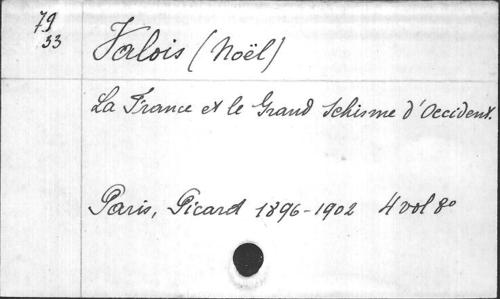 79
33
Valois (Noël)
La France et le Grand Schisme d'Occident.
Paris, Picard 1896-1902 4 vol 8º